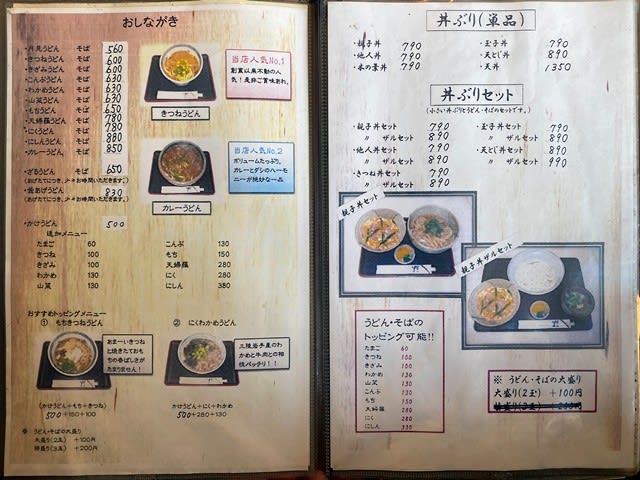 おしながき
・月見うどん そば 560
・きつねうどん そば 600
・きざみうどん そば 600
・こんぶうどん そば 630
・わかめうどん そば 630
・山菜うどん そば 630
・もちうどん そば 650
・天婦羅うどん そば 780
・にくうどん そば 780
・にしんうどん そば 880
・カレーうどん そば 850
・ざるうどん そば 650
・釜あげうどん 830
・かけうどん 500
追加メニュー
たまご 60
きつね 100
きざみ 100
わかめ 130
山菜 130
こんぶ 130
もち 150
天婦羅 280
にく 280
にしん 380
当店人気No.1
創業以来不動の人
気！是非ご賞味あれ。
きつねうどん
当店人気No.2
ボリュームたっぷり。
カレーとダシのハーモ
ニーが絶妙な一品
カレーうどん
おすすめトッピングメニュー
① もちきつねうどん
あま〜いきつね
と焼きたておも
ちの香ばしさが
たまりません！
(かけうどん+もち+きつね)
500+150+100
② にくわかめうどん
三陸岩手産のわ
かめと牛肉との相
性バッチリ！！
かけうどん+にく+わかめ
500+280+130
※ うどん・そばの大盛り
大盛り(2玉) +100円
特盛り(3玉) +200円
丼ぶり(単品)
・親子丼 790
・他人丼 790
・木の葉丼 790
・玉子丼 790
・天とじ丼 890
・天丼 1350
丼ぶりセット
(小さい丼ぶりとうどん・そばのセットです。)
・親子丼セット 790
〃 ザルセット 890
・他人丼セット 790
〃 ザルセット 890
・きつね丼セット 790
〃 ザルセット 890
・玉子丼セット 790
〃 ザルセット 890
・天とじ丼セット 890
〃 ザルセット 990
親子丼セット
親子丼ザルセット
うどん・そばの
トッピング可能!!
たまご 60
きつね 100
きざみ 100
わかめ 130
山菜 130
こんぶ 130
もち 150
天婦羅 280
にく 280
にしん 330
※ うどん・そばの大盛り
大盛り(2玉) +100円
特盛り(3玉) +200円